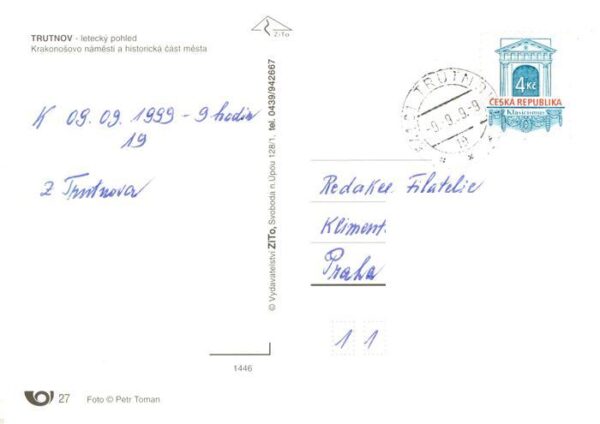 TRUTNOV - letecký pohled
Krakonošovo náměstí a historická část města
ZiTo
K 09. 09. 1999 - 9 hodin
19
Z Trutnova
© Vydavatelství ZiTo, Svoboda n.Úpou 128/1, tel. 0439/942667
TRUTNOV
-9.9.9-9
19
4 Kč
ČESKÁ REPUBLIKA
Klasicismus
Redakce Filatelie
Kliment.
Praha
1 1
1446
27 Foto © Petr Toman